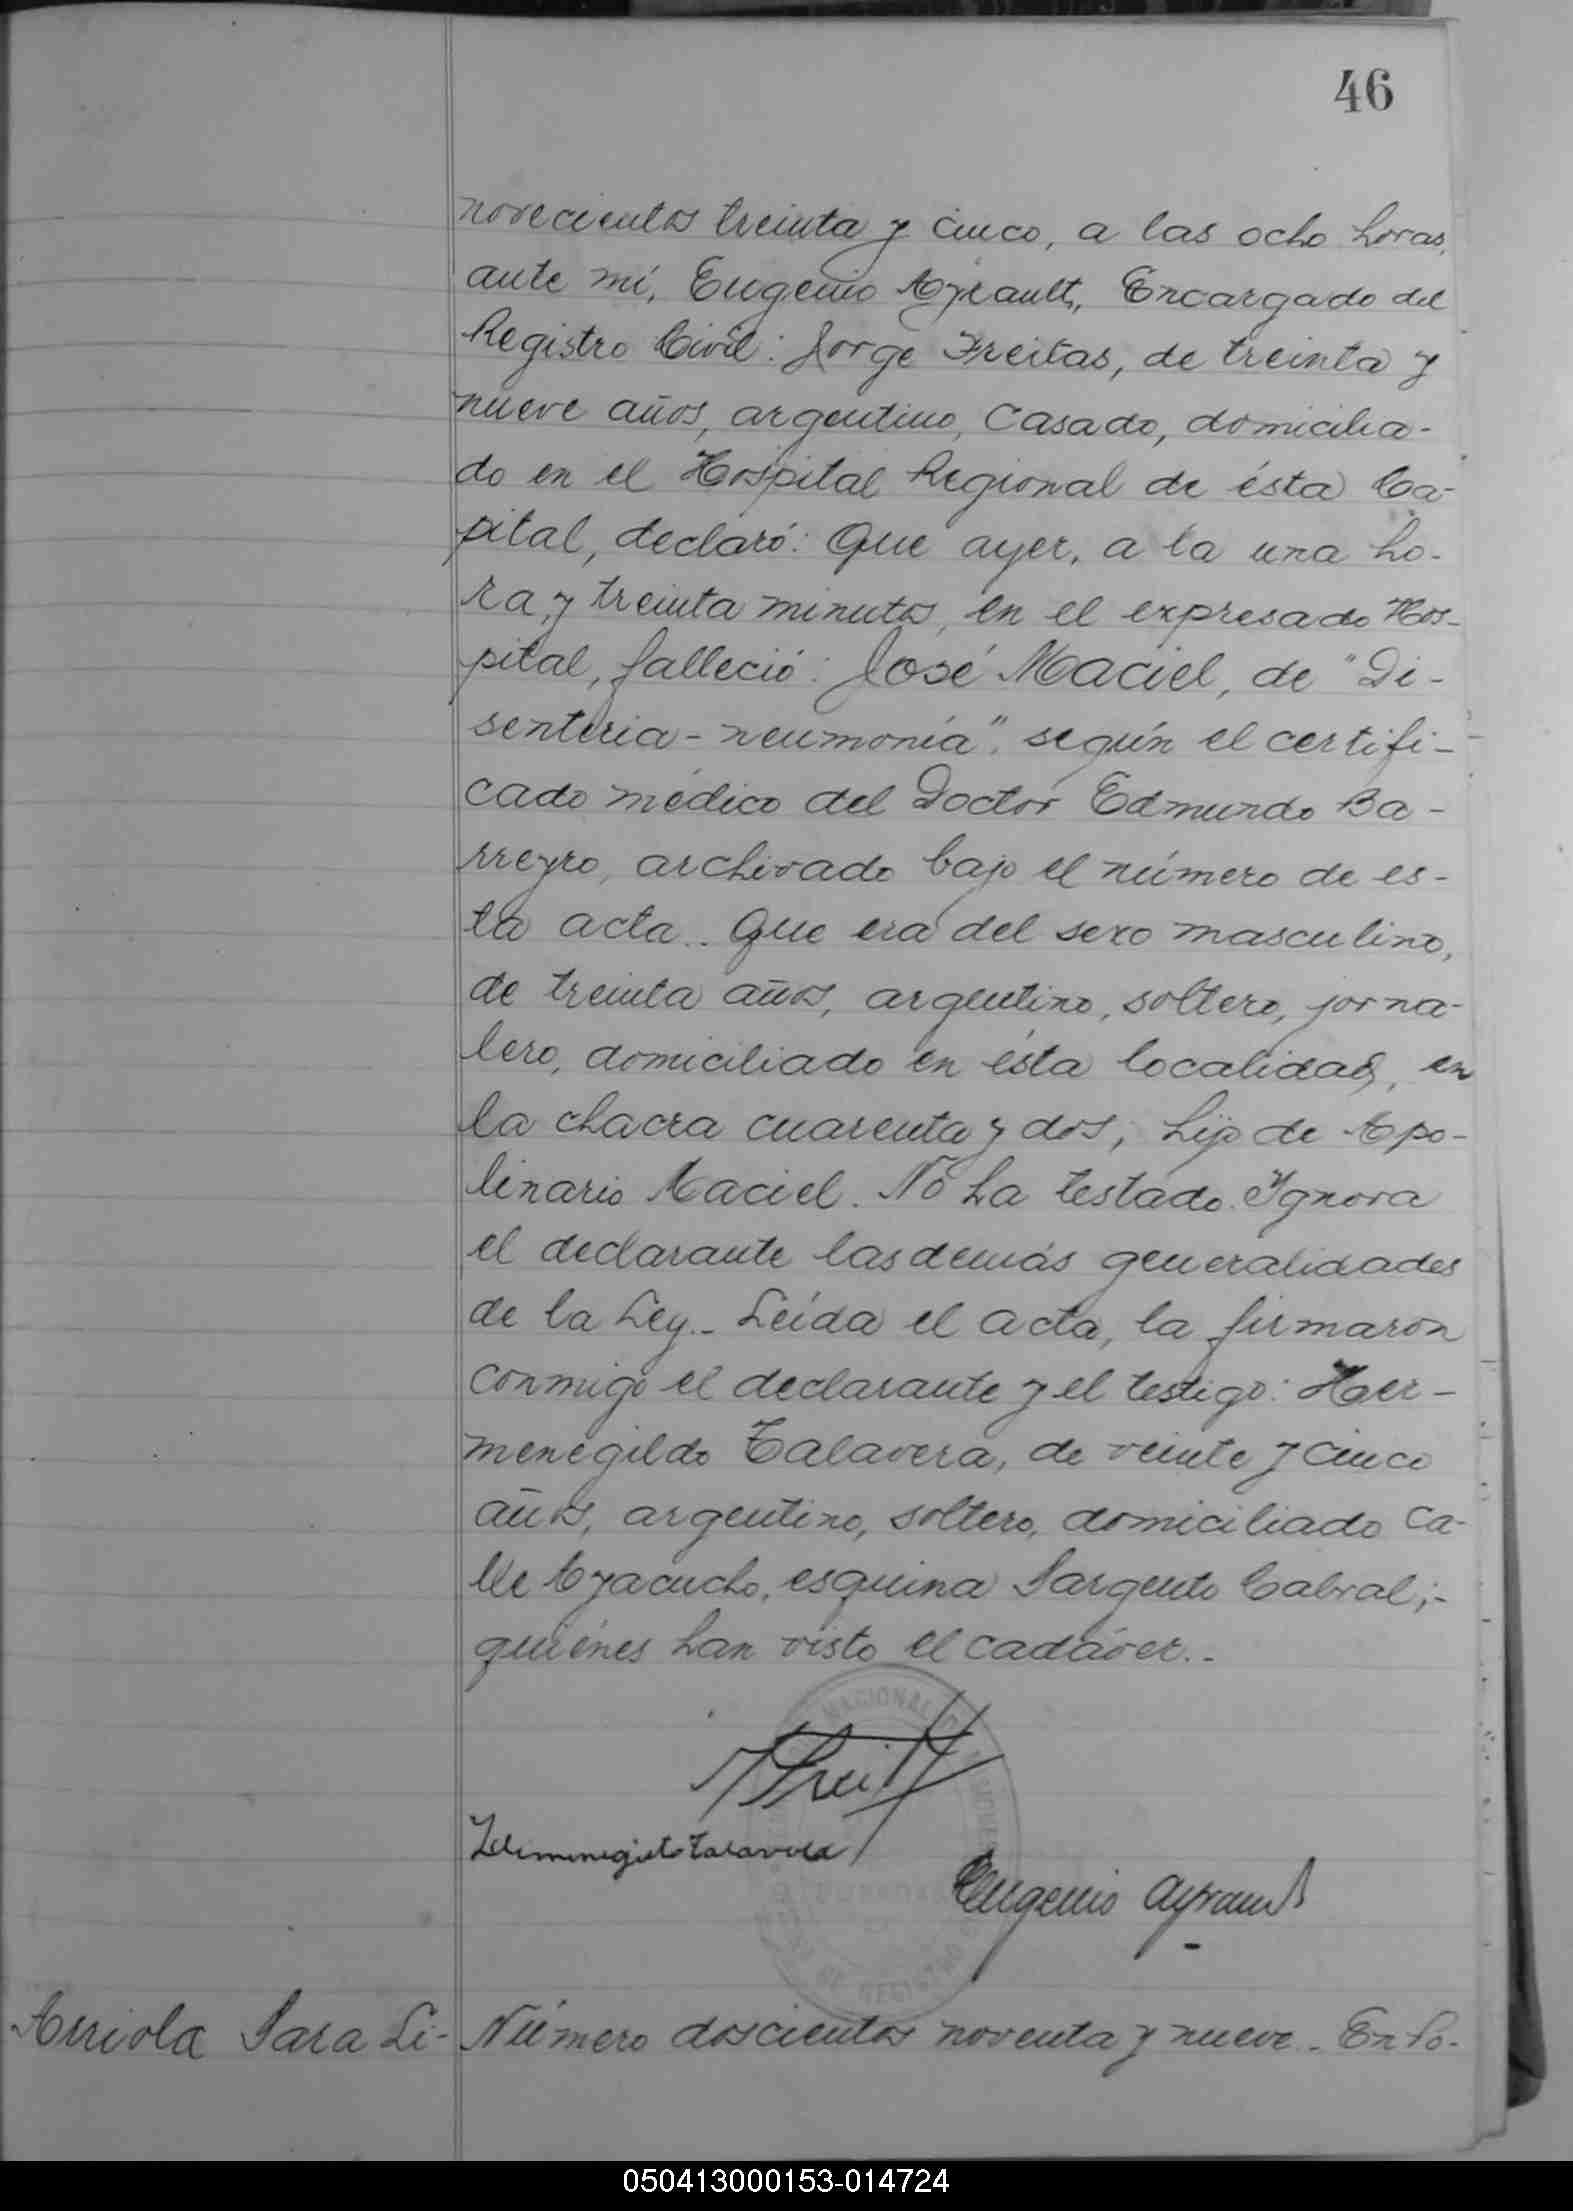 46
novecientos treinta y cinco, a las ocho horas,
ante mí, Eugenio Ayrault, Encargado del
Registro Civil: Jorge Freitas, de treinta y
nueve años, argentino, casado, domicilia-
do en el Hospital Regional de ésta Ca-
pital, declaró: Que ayer, a la una ho-
ra, y treinta minutos, en el expresado Hos-
pital, falleció: José Maciel, de "Di-
sentería-neumonía", según el certifi-
cado médico del Doctor Edmundo Ba-
rreyro, archivado bajo el número de es-
ta acta.. Que era del sexo masculino,
de treinta años, argentino, soltero, jorna-
lero, domiciliado en ésta localidad, en
la chacra cuarenta y dos, hijo de Apo-
linario Maciel. No ha testado. Ygnora
el declarante las demás generalidades
de la Ley.- Leída el acta, la firmaron
conmigo el declarante y el testigo: Her-
menegildo Talavera, de veinte y cinco
años, argentino, soltero, domiciliado ca-
lle Ayacucho, esquina Sargento Cabral;-
quiénes han visto el cadáver..-
Eugenio Ayrault
Arriola Sara Li- Número doscientos noventa y nueve.- En Po-
050413000153-014724